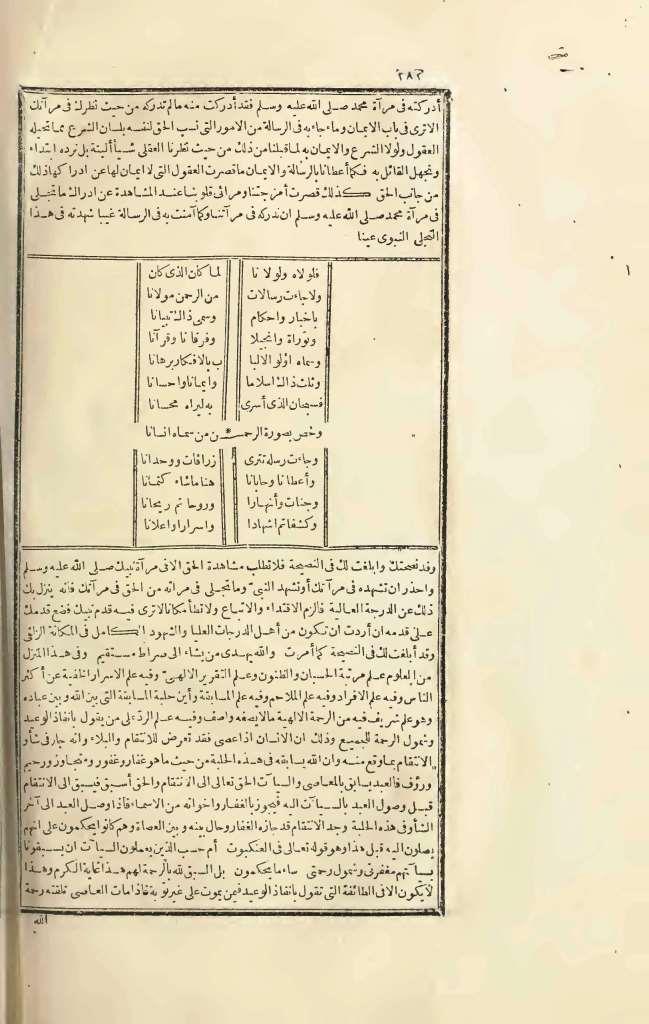 ٢٨٢
أدركته فى مرآة محمد صلى الله عليه وسلم فقد أدركت منه مالم تدركه من حيث نظرك فى مرآتك
الاترى فى باب الايمان وماء جاء به فى الرسالة من الامور التى نسب الحق لنفسه بلسان الشرع مما تحيله
العقول ولولا الشرع والايمان به لما قبلنا من ذلك من حيث نظرنا العقلى شيأ ألبتة بل نرده ابتداء
ونجهل القائل به فكما أعطانا بالرسالة والايمان ما قصرت العقول التى لا ايمان لها عن ادراكها ذلك
من جانب الحق كذلك قصرت أمزجتنا ومرائى قلوبنا عند المشاهدة عن ادراك ما تجلى
فى مرآة محمد صلى الله عليه وسلم ان ندركه فى مرآتنا وكما آمنت به فى الرسالة غيبا شهدته فى هذا
التجلى النبوى عينا
فلولاه ولولانا لما كان الذى كان
ولا جاءت رسالات من الرحمن مولانا
باخبار واحكام وسمى ذاك تبيانا
وتوراة وانجيلا وفرقانا وقرآنا
وسماه اولو الالبا ب بالافكار برهانا
وثلث ذاك اسلاما وايمانا واحسانا
فسبحان الذى أسرى به ليراه محسانا
وخص بصورة الرحمـ * ـن من سماه انسانا
وجاءت رسله تترى زرافات ووحدانا
وأعطانا وحابانا هنا ماشاء كتمانا
وجنات وأنهارا وروحا ثم ريحانا
وكشفا ثم اشهادا واسرارا واعلانا
وقد نصحتك وابلغت لك فى النصيحة فلا تطلب مشاهدة الحق الا فى مرآة نبيك صلى الله عليه وسلم
واحذر ان تشهده فى مرآتك أو تشهد النبى وما تجلى فى مرآته من الحق فى مرآتك فانه ينزل بك
ذلك عن الدرجة العالية فالزم الاقتداء والاتباع ولا تطأ مكانا لاترى فيه قدم نبيك فضع قدمك
على قدمه ان أردت ان تكون من أهل الدرجات العليا والشهود الكامل فى المكانة الزلفى
وقد أبلغت لك فى النصيحة كما أمرت والله يهدى من يشاء الى صراط مستقيم وفى هذا المنزل
من العلوم علم مرتبة الحسبان والظنون وعلم التقرير الالهى وفيه علم الاسرار الخفية عن أكثر
الناس وفيه علم الافراد وفيه علم الملاحم وفيه علم المسابقة وأين حلبة المسابقة التى بين الله وبين عباده
وهو علم شريف فيه من الرحمة الالهية ما لا يصفه واصف وفيه علم الرد على من يقول بانفاذ الوعيد
وشمول الرحمة للجميع وذلك ان الانسان اذا عصى فقد تعرض للانتقام والبلاء وانه جار فى شأو
الانتقام بما وقع منه وان الله يسابقه فى هذه الحلبة من حيث ما هو غفار وغفور ومتجاوز ورحيم
ورؤف فالعبد يسابق بالمعاصى والسيات الحق تعالى الى الانتقام والحق أسبق فيسبق الى الانتقام
قبل وصول العبد بالسيآت اليه فيجوز بالغفار واخوانه من الاسماء فاذا وصل العبد الى آخر
الشأو فى هذه الحلبة وجد الانتقام قد جازه الغفار وحال بينه وبين العصاة وهم كانوا يحكمون على انهم
يصلون اليه قبل هذا وهو قوله تعالى فى العنكبوت أم حسب الذين يعملون السيآت ان يسبقونا
بسيآتهم مغفرتى وشمول رحمتى ساء ما يحكمون بل السبق لله بالرحمة لهم هذا غاية الكرم وهذا
لا يكون الا فى الطائفة التى تقول بانفاذ الوعيد فيمن يموت على غير توبة فاذا مات العاصى تلقته رحمة
الله